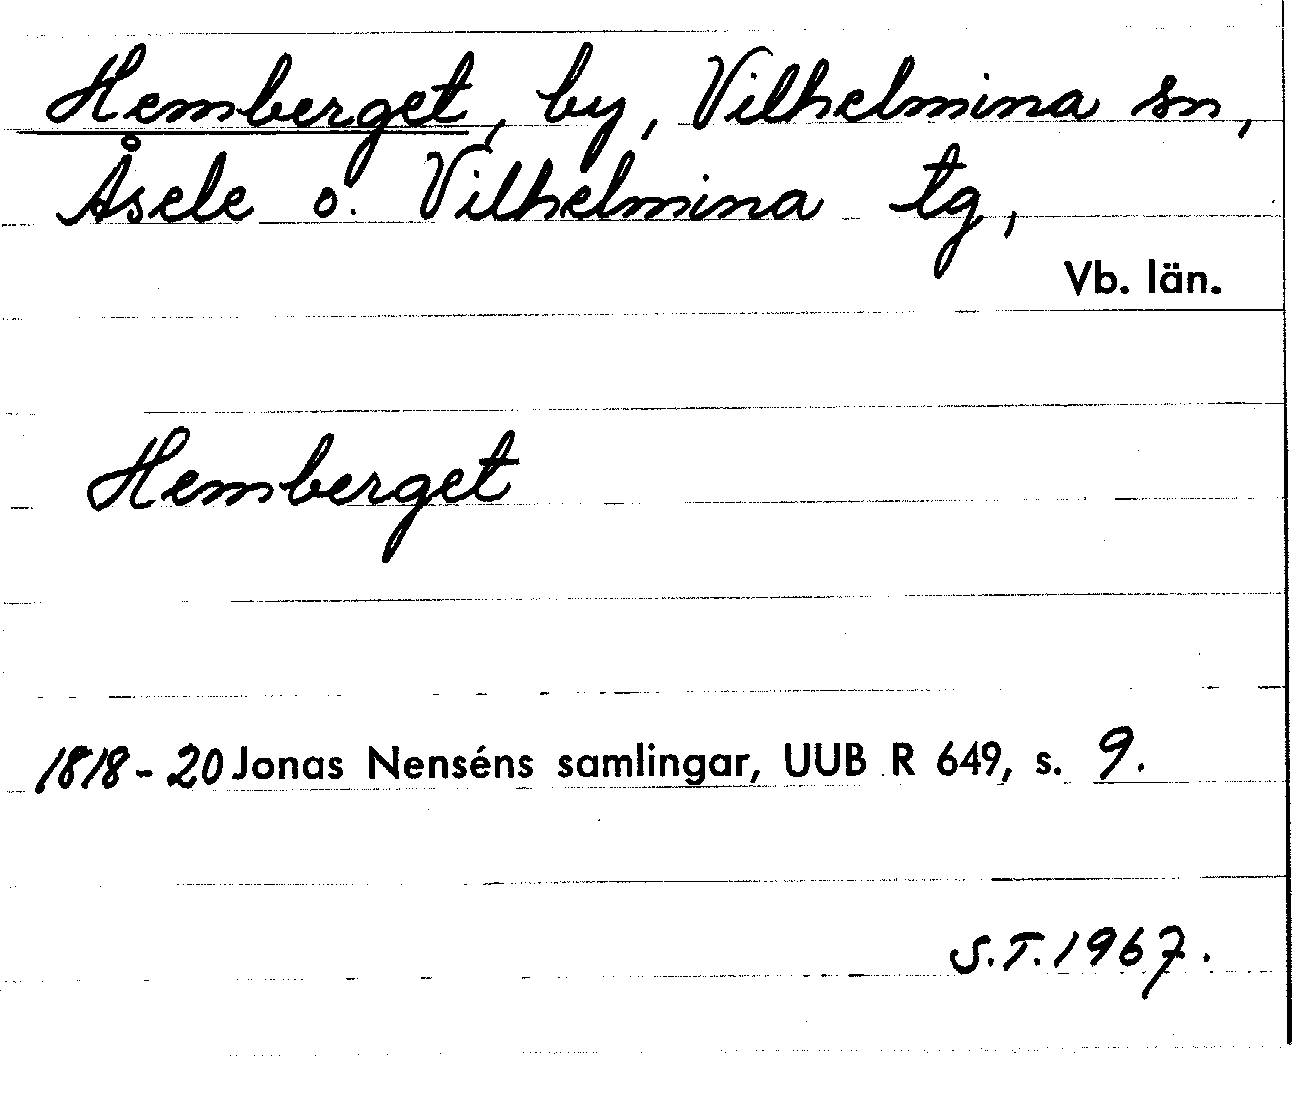 Hemberget, by, Vilhelmina sn,
Åsele o. Vilhelmina tg,
Vb. län.
Hemberget
1818-20 Jonas Nenséns samlingar, UUB R 649, s. 9.
S.T. 1967.